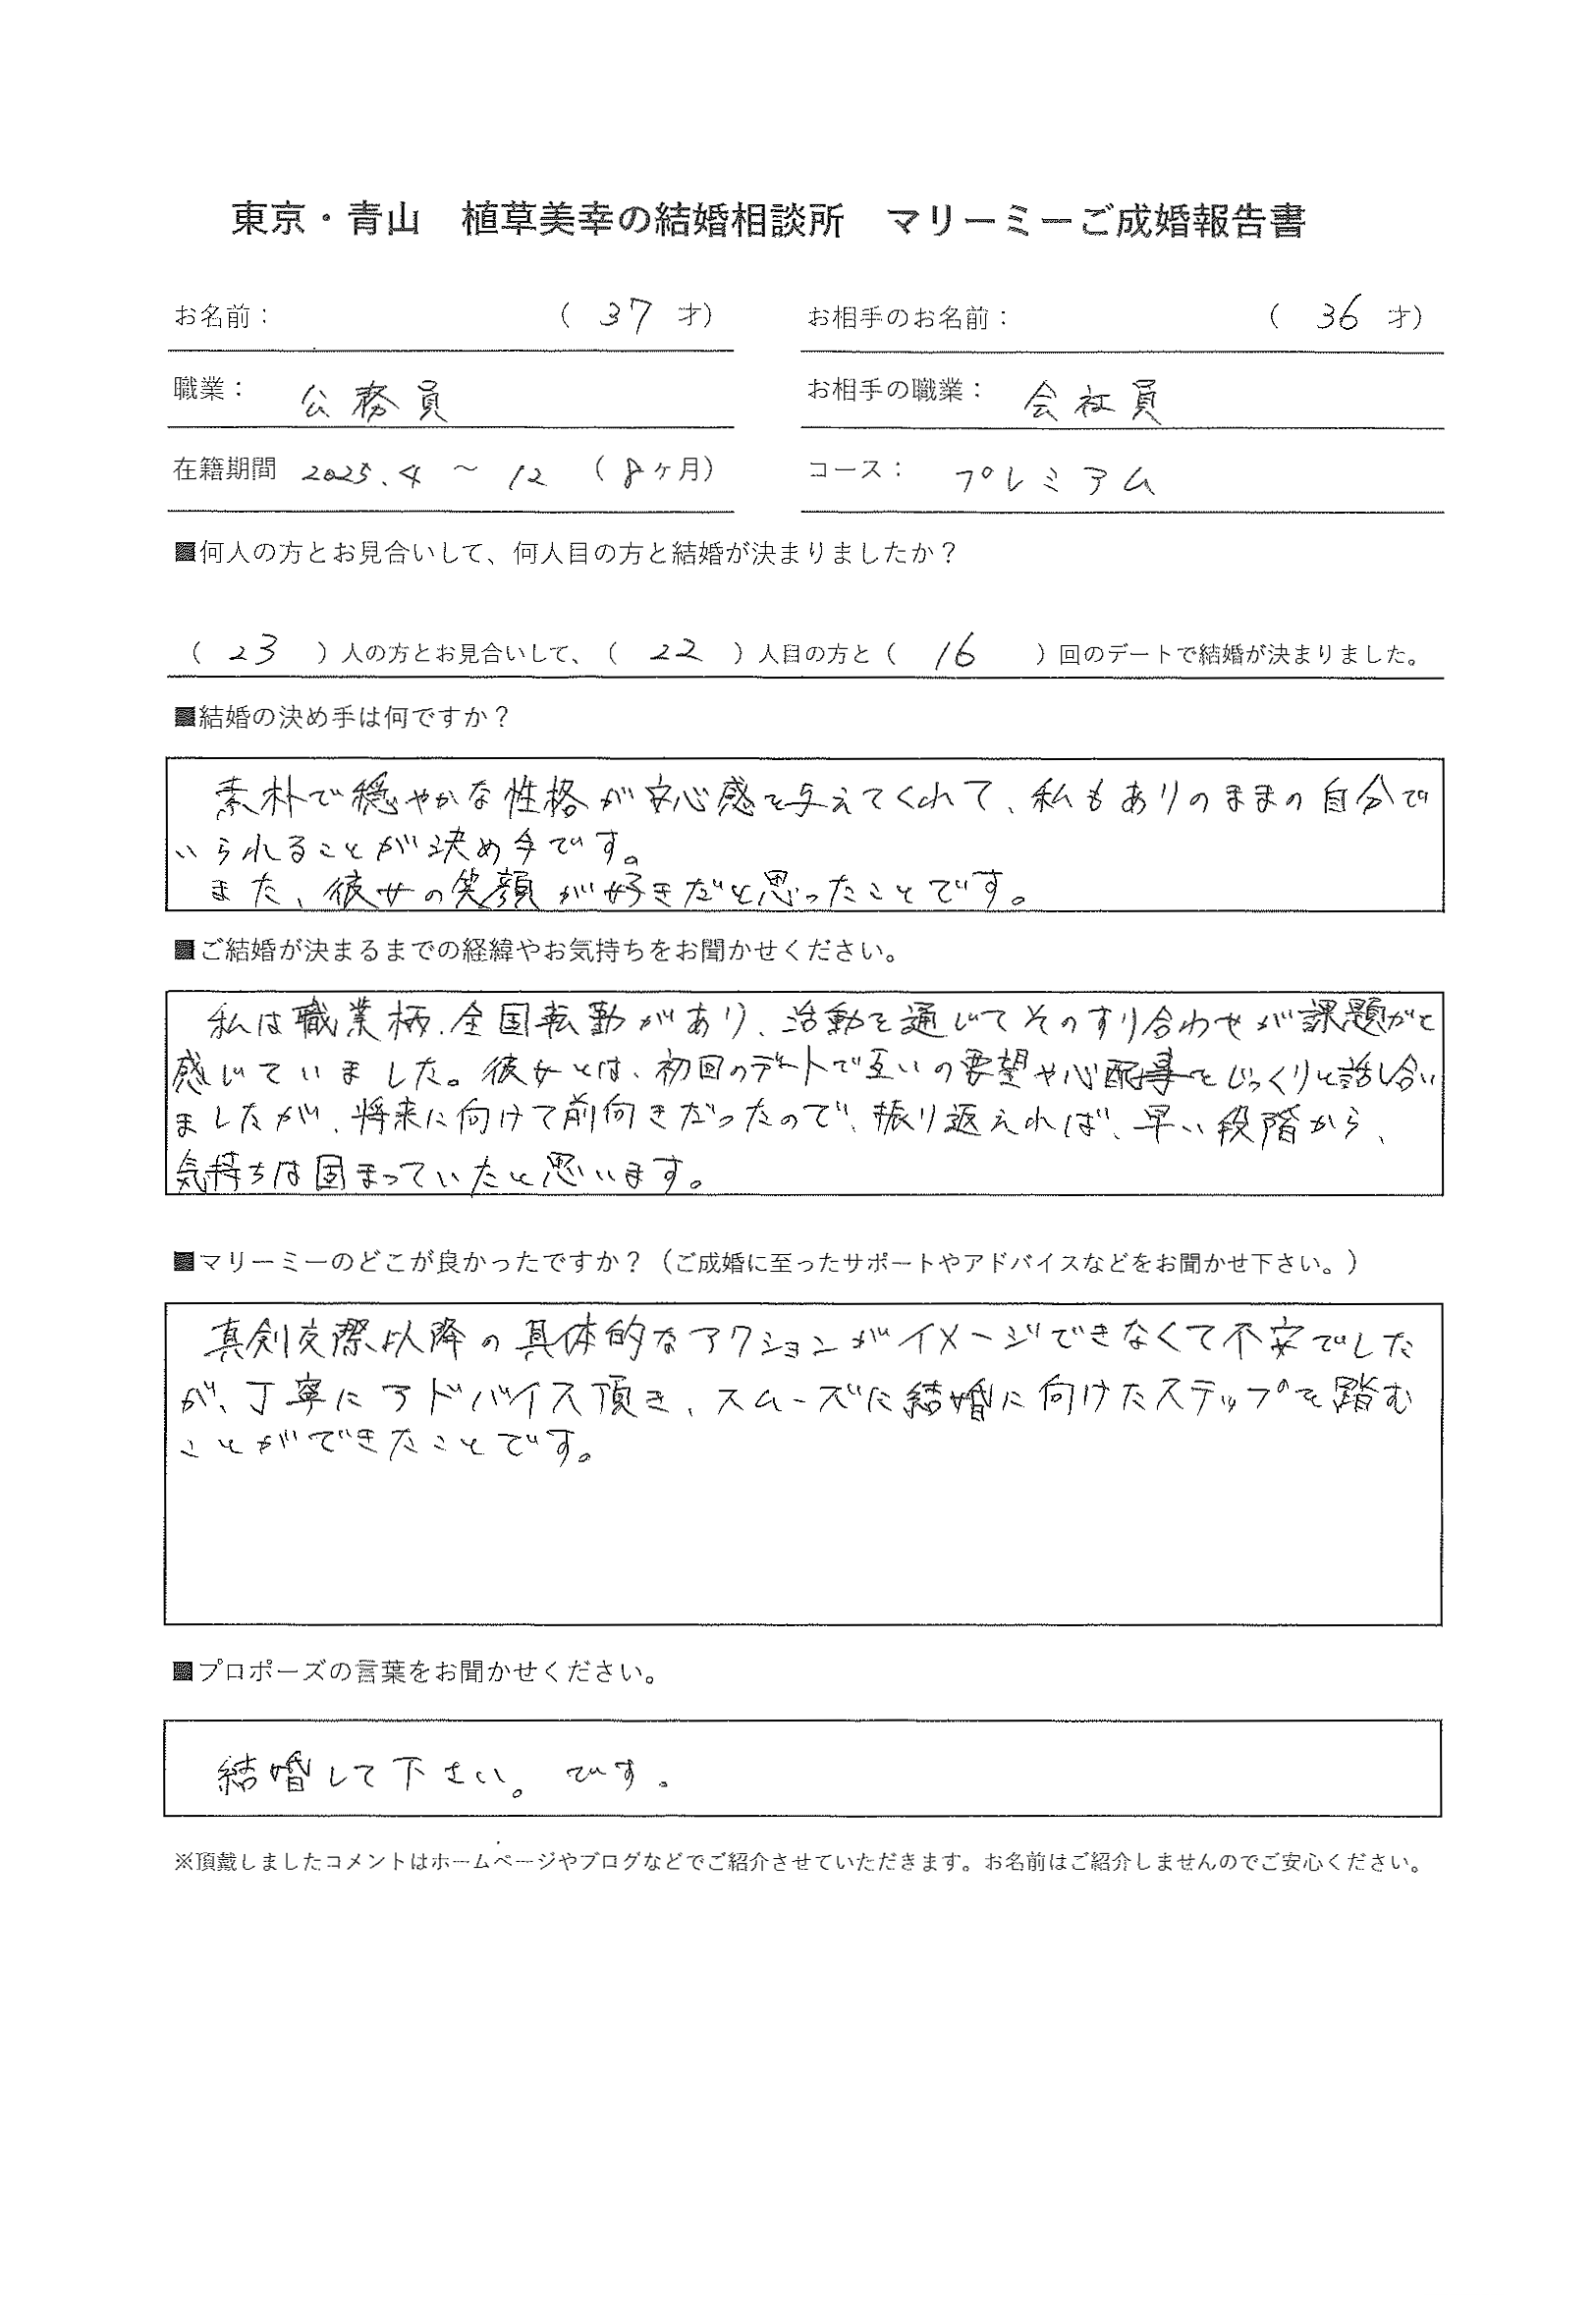 東京・青山　植草美幸の結婚相談所　マリーミーご成婚報告書
お名前：　（ 37 才）　お相手のお名前：　（ 36 才）
職業：　公務員　お相手の職業：　会社員
在籍期間　2025.4 ～ 12 （8ヶ月）　コース：　プレミアム
■何人の方とお見合いして、何人目の方と結婚が決まりましたか？
（ 23 ）人の方とお見合いして、（ 22 ）人目の方と（ 16 ）回のデートで結婚が決まりました。
■結婚の決め手は何ですか？
素朴で穏やかな性格が安心感を与えてくれて、私もありのままの自分で
いられることが決め手です。
また、彼女の笑顔が好きだと思ったことです。
■ご結婚が決まるまでの経緯やお気持ちをお聞かせください。
私は職業柄、全国転勤があり、活動を通じてそのすり合わせが課題がと
感じていました。彼女とは、初回のデートで互いの要望や心配事をじっくりと話し合い
ましたが、将来に向けて前向きだったので、振り返えれば、早い段階から、
気持ちは固まっていたと思います。
■マリーミーのどこが良かったですか？（ご成婚に至ったサポートやアドバイスなどをお聞かせ下さい。）
真剣交際以降の具体的なアクションがイメージできなくて不安でした
が、丁寧にアドバイス頂き、スムーズに結婚に向けたステップを踏む
ことができたことです。
■プロポーズの言葉をお聞かせください。
結婚して下さい。です。
※頂戴しましたコメントはホームページやブログなどでご紹介させていただきます。お名前はご紹介しませんのでご安心ください。